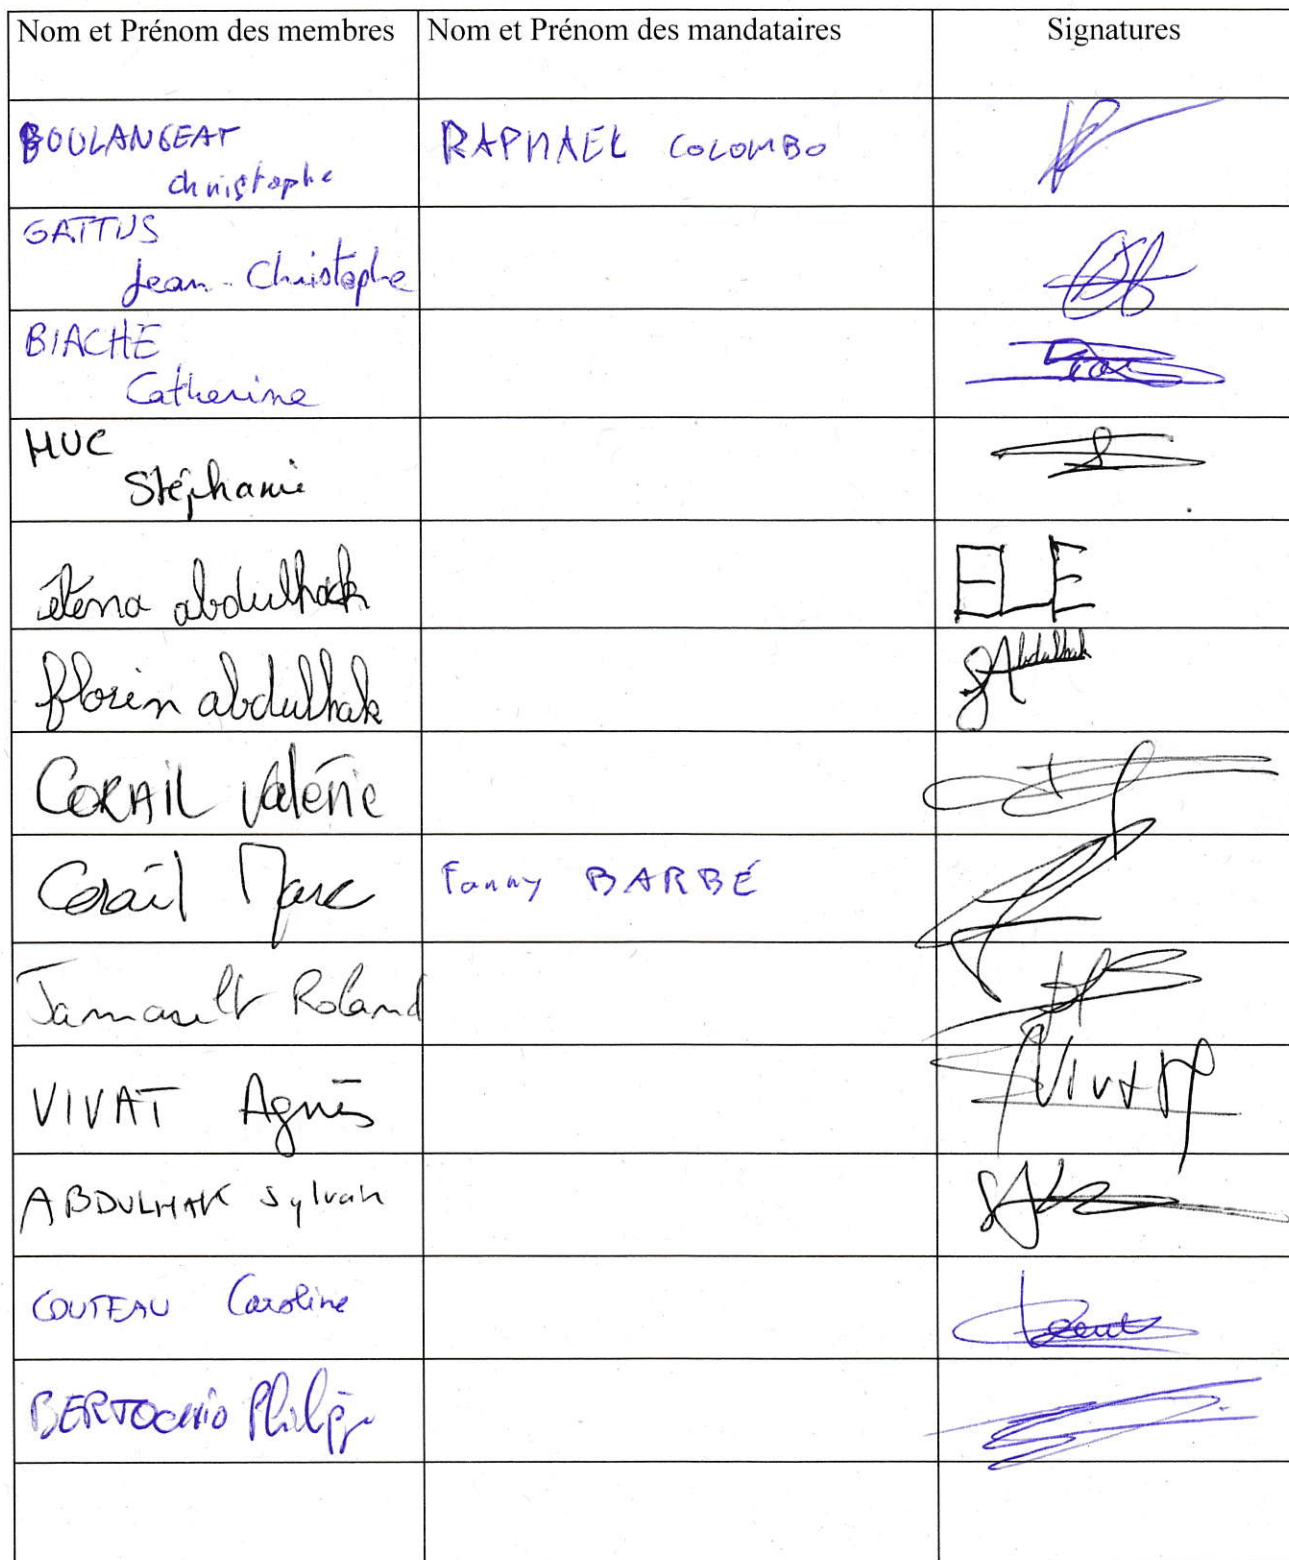 Nom et Prénom des membres Nom et Prénom des mandataires Signatures
BOULANGEAT RAPHAEL COLOMBO
christophe
GATTUS
Jean-Christophe
BIACHE
Catherine
HUC
Stéphanie
abdulhak ELE
florin abdulhak Abdulhak
CORAIL Valérie
Corail Marc Fanny BARBÉ
Jamault Roland
VIVAT Agnès VIVAT
ABDULHAK Sylvain
COUTEAU Caroline
BERTOCHIO Philippe